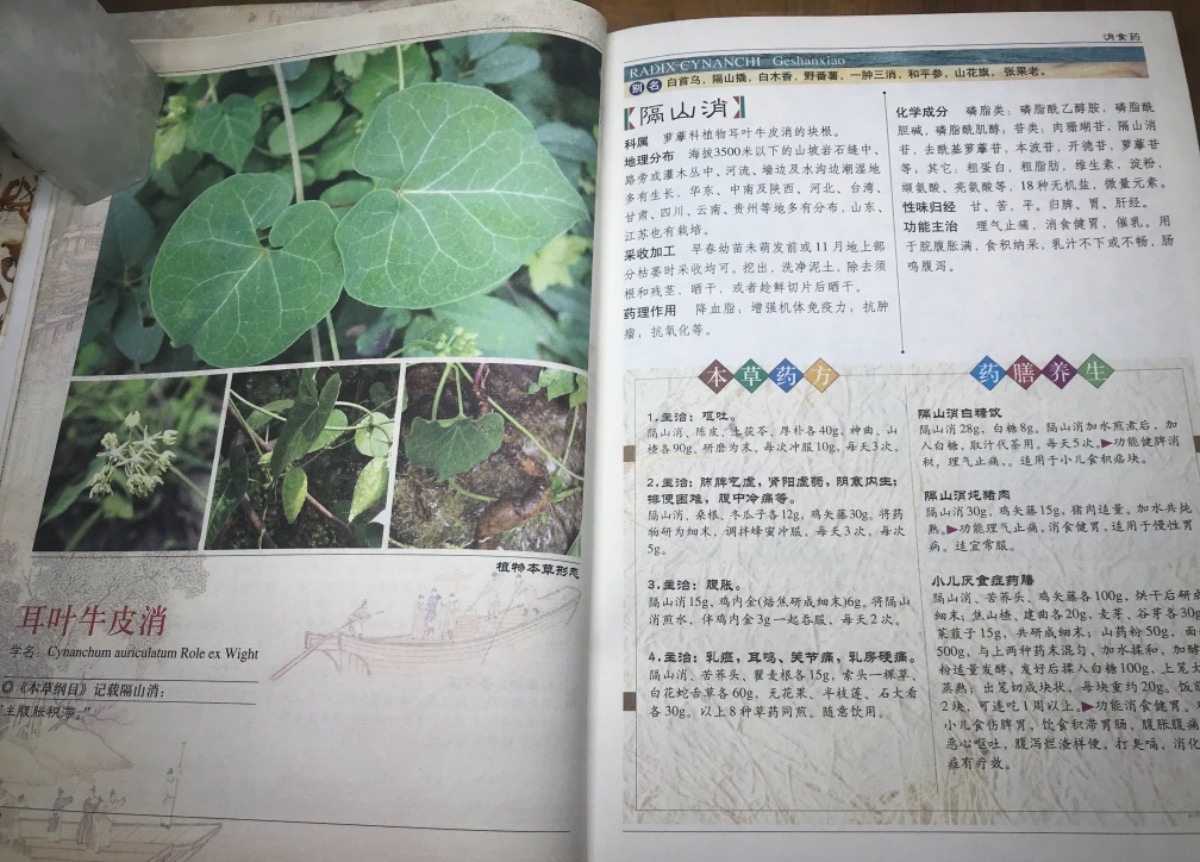 植物本草形态
耳叶牛皮消
学名：Cynanchum auriculatum Role ex Wight
◎《本草纲目》记载隔山消：
“主腹胀积滞。”
消食药
RADIX CYNANCHI Geshanxiao
别名 白首乌，隔山撬，白木香，野番薯，一肿三消，和平参，山花旗，张果老。
【隔山消】
科属 萝藦科植物耳叶牛皮消的块根。
地理分布 海拔3500米以下的山坡岩石缝中、
路旁或灌木丛中、河流、墙边及水沟边潮湿地
多有生长，华东、中南及陕西、河北、台湾、
甘肃、四川、云南、贵州等地多有分布，山东、
江苏也有栽培。
采收加工 早春幼苗未萌发前或11月地上部
分枯萎时采收均可。挖出，洗净泥土，除去须
根和残茎，晒干，或者趁鲜切片后晒干。
药理作用 降血脂；增强机体免疫力；抗肿
瘤；抗氧化等。
化学成分 磷脂类：磷脂酰乙醇胺，磷脂酰
胆碱，磷脂酰肌醇；苷类：肉珊瑚苷，隔山消
苷，去酰基萝藦苷，本波苷，开德苷，萝藦苷
等；其它：粗蛋白，粗脂肪，维生素、淀粉，
缬氨酸、亮氨酸等，18种无机盐，微量元素。
性味归经 甘、苦，平。归脾、胃、肝经。
功能主治 理气止痛，消食健胃，催乳。用
于脘腹胀满，食积纳呆，乳汁不下或不畅，肠
鸣腹泻。
本草药方
1.主治：呕吐。
隔山消、陈皮、土茯苓、厚朴各40g，神曲、山
楂各90g。研磨为末，每次冲服10g，每天3次。
2.主治：肺脾气虚，肾阳虚弱，阴寒内生；
排便困难，腹中冷痛等。
隔山消、桑根、冬瓜子各12g，鸡矢藤30g。将药
物研为细末，调拌蜂蜜冲服，每天3次，每次
5g。
3.主治：腹胀。
隔山消15g，鸡内金(焙焦研成细末)6g。将隔山
消煎水，伴鸡内金3g一起吞服，每天2次。
4.主治：乳癌，耳鸣、关节痛，乳房硬痛。
隔山消、苦荞头、瞿麦根各15g，索头一棵草、
白花蛇舌草各60g，无花果、半枝莲、石大看
各30g。以上8种草药同煎。随意饮用。
药膳养生
隔山消白糖饮
隔山消28g，白糖8g。隔山消加水煎煮后，加
入白糖，取汁代茶用。每天5次。▶功能健脾消
积，理气止痛，。适用于小儿食积痞块。
隔山消炖猪肉
隔山消30g，鸡矢藤15g，猪肉适量。加水共炖
熟。▶功能理气止痛，消食健胃，适用于慢性胃
病。适宜常服。
小儿厌食症药膳
隔山消、苦荞头、鸡矢藤各100g，烘干后研成
细末；焦山楂、建曲各20g，麦芽、谷芽各30g
莱菔子15g，共研成细末；山药粉50g，面
500g，与上两种药末混匀，加水揉和，加酵
粉适量发酵，发好后揉入白糖100g，上笼大
蒸熟；出笼切成块状，每块重约20g。饭前
2块，可连吃1周以上。▶功能消食健胃。对
小儿食伤脾胃，饮食积滞胃肠，腹胀腹痛
恶心呕吐，腹泻烂渣样便，打臭嗝，消化
症有疗效。